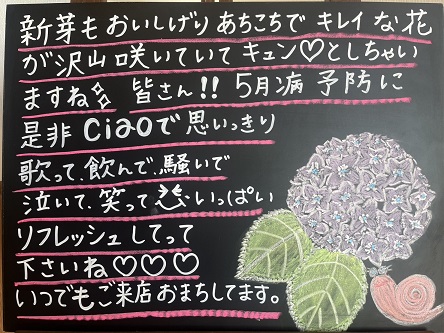 新芽もおいしげりあちこちでキレイな花
が沢山咲いていてキュン♡としちゃい
ますね 皆さん!! 5月病予防に
是非ciaoで思いっきり
歌って、飲んで、騒いで
泣いて、笑って いっぱい
リフレッシュしてって
下さいね♡♡♡
いつでもご来店おまちしてます。